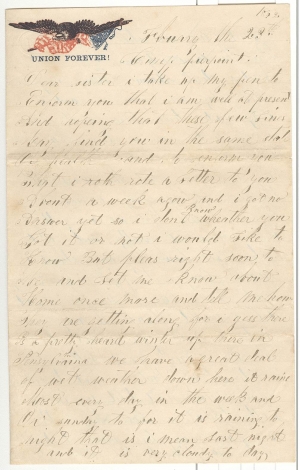 UNION FOREVER!
23
Camp pierpoint
Dear sister i take up my pen to
inform you that i am well at present
and hopeing that these few lines
find you in the same state
of health and to inform you
that i rote a letter to you
about a week agow and i got no
answer yet so i dont know wheather you
got it or not i would like to
know But pleas right soon to
me and let me know about
home once more and tell me how
you are getting along for i guess there
is a pretty hard winter up there in
we have a great deal
of wet weather down here it rains
most every day in the week and
sunday to for it is raining to
night that is i mean last night
and it is very cloudy to day